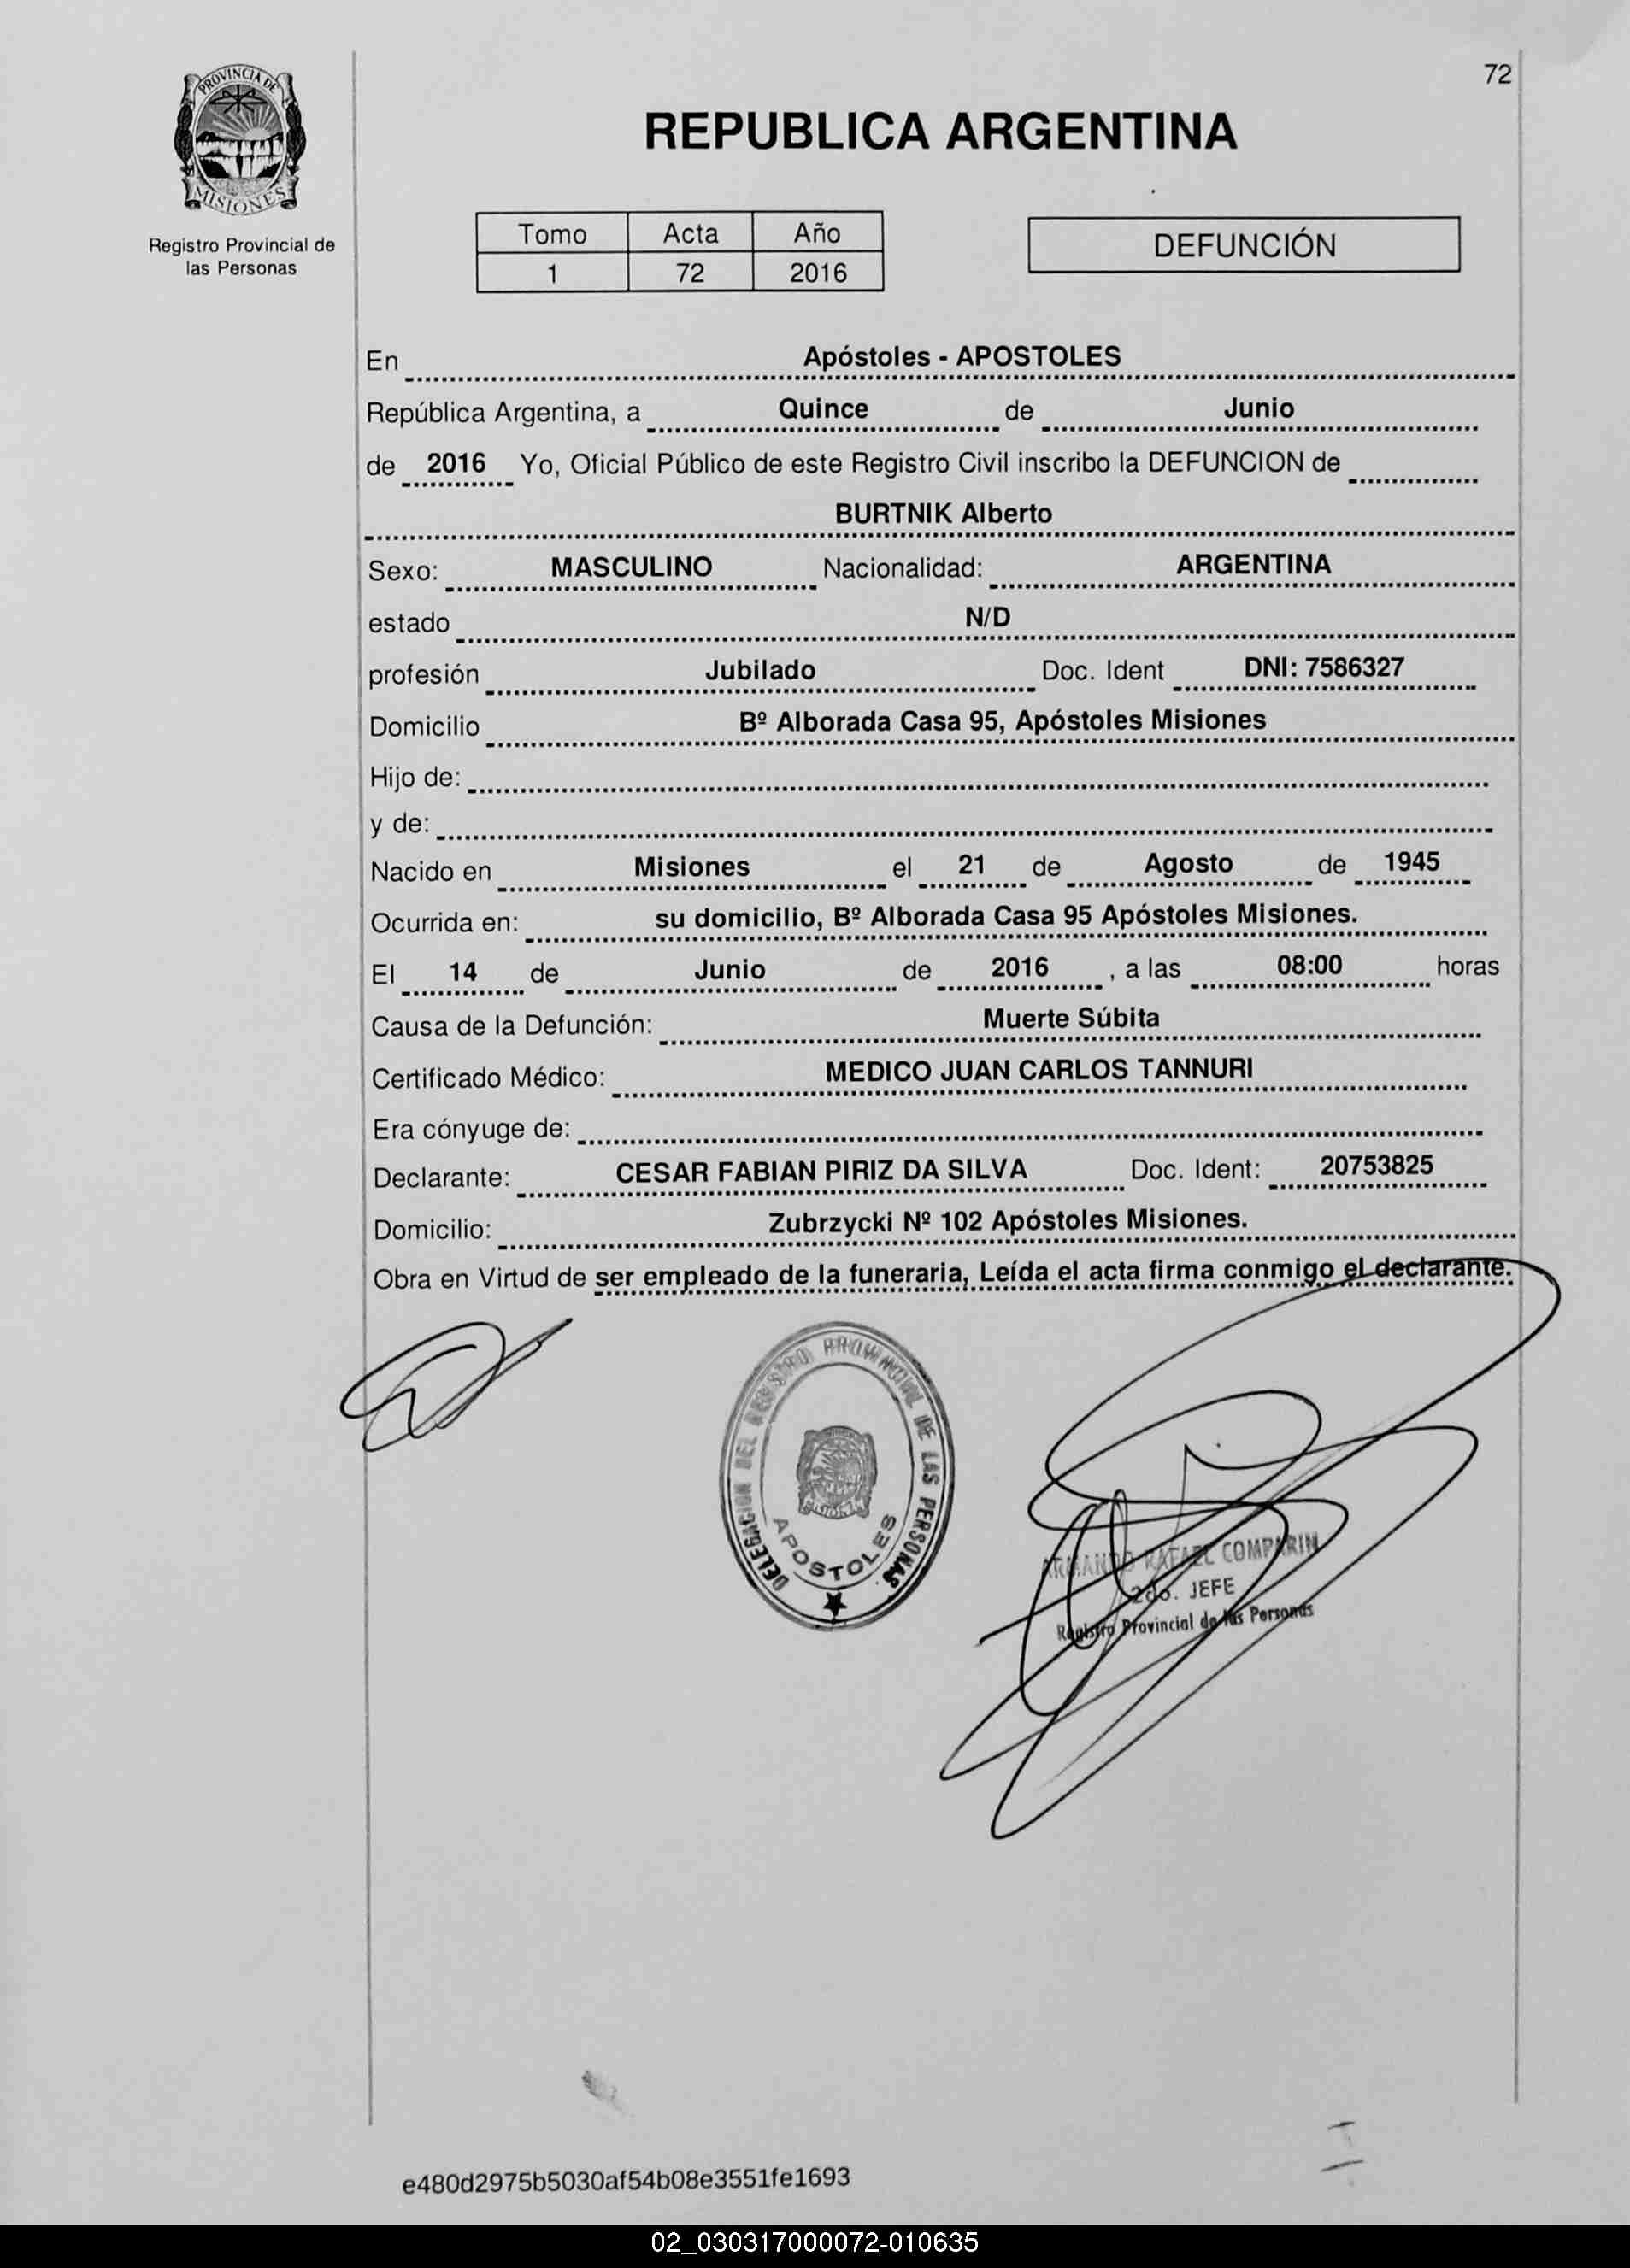 72
PROVINCIA DE
MISIONES
Registro Provincial de
las Personas
REPUBLICA ARGENTINA
Tomo Acta Año
1 72 2016
DEFUNCIÓN
En Apóstoles - APOSTOLES
República Argentina, a Quince de Junio
de 2016 Yo, Oficial Público de este Registro Civil inscribo la DEFUNCION de
BURTNIK Alberto
Sexo: MASCULINO Nacionalidad: ARGENTINA
estado N/D
profesión Jubilado Doc. Ident DNI: 7586327
Domicilio Bº Alborada Casa 95, Apóstoles Misiones
Hijo de:
y de:
Nacido en Misiones el 21 de Agosto de 1945
Ocurrida en: su domicilio, Bº Alborada Casa 95 Apóstoles Misiones.
El 14 de Junio de 2016 , a las 08:00 horas
Causa de la Defunción: Muerte Súbita
Certificado Médico: MEDICO JUAN CARLOS TANNURI
Era cónyuge de:
Declarante: CESAR FABIAN PIRIZ DA SILVA Doc. Ident: 20753825
Domicilio: Zubrzycki Nº 102 Apóstoles Misiones.
Obra en Virtud de ser empleado de la funeraria, Leída el acta firma conmigo el declarante.
DELEGACION DEL REGISTRO PROVINCIAL DE LAS PERSONAS
MISIONES
APOSTOLES
ARMANDO RAFAEL COMPARIN
2do. JEFE
Registro Provincial de las Personas
e480d2975b5030af54b08e3551fe1693
02_030317000072-010635